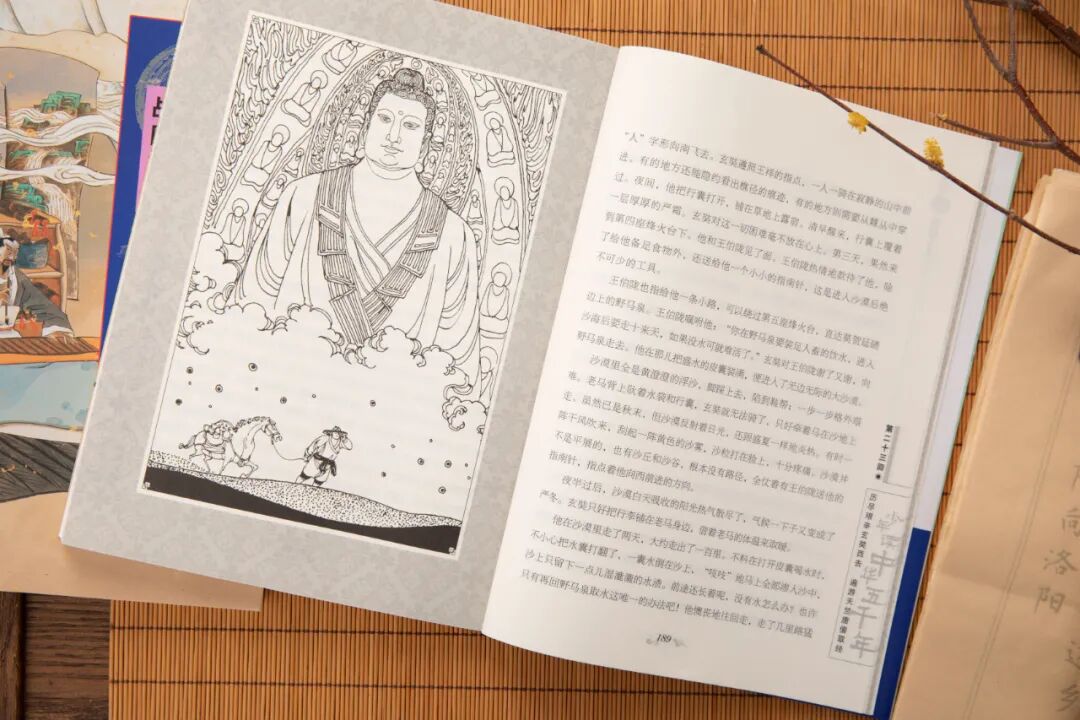 "人"字形向南飞去。玄奘遵照王祥的指点，一人一骑在寂静的山中前
进。有的地方还能隐约看出樵径的痕迹，有的地方则需要从棘丛中穿
过。夜间，他把行囊打开，铺在草地上露宿。清早醒来，行囊上覆着
一层厚厚的严霜。玄奘对这一切困难毫不放在心上。第三天，果然来
到第四座烽火台下。他和王伯陇见了面。王伯陇热情地款待了他，除
了给他备足食物外，还送给他一个小小的指南针，这是进入沙漠后绝
不可少的工具。
王伯陇也指给他一条小路，可以绕过第五座烽火台，直达莫贺延碛
边上的野马泉。王伯陇嘱咐他："你在野马泉要装足人畜的饮水，进入
沙海后要走十来天，如果没水可就难活了。"玄奘对王伯陇谢了又谢，向
野马泉走去。他在那儿把盛水的皮囊装满，便进入了无边无际的大沙漠。
沙漠里全是黄澄澄的浮沙，脚踩上去，陷到鞋帮；一步一步格外艰
难。老马背上驮着水袋和行囊，玄奘就无法骑了，只好牵着马在沙地上
走。虽然已是秋末，但沙漠反射着日光，还跟盛夏一样地炎热。有时一
阵干风吹来，刮起一阵黄色的沙雾，沙粒打在脸上，十分疼痛。沙漠并
不是平展的，也有沙丘和沙谷，根本没有路径，全仗着有王伯陇送他的
指南针，指点着他向西前进的方向。
夜半过后，沙漠白天吸收的阳光热气散尽了，气候一下子又变成了
严冬。玄奘只好把行李铺在老马身边，借着老马的体温来取暖。
他在沙漠里走了两天，大约走出了一百里。不料在打开皮囊喝水时，
不小心把水囊打翻了，一囊水倒在沙上，"吱吱"地马上全部渗入沙中，
沙上只留下一点儿湿漉漉的水渍。前途还长着呢，没有水怎么办？也许
只有再回野马泉取水这唯一的办法吧！他懊丧地往回走，走了几里路猛
189
第二十三回
历尽艰辛玄奘西去 遍游天竺唐僧取经
少年读中华五千年
向洛阳